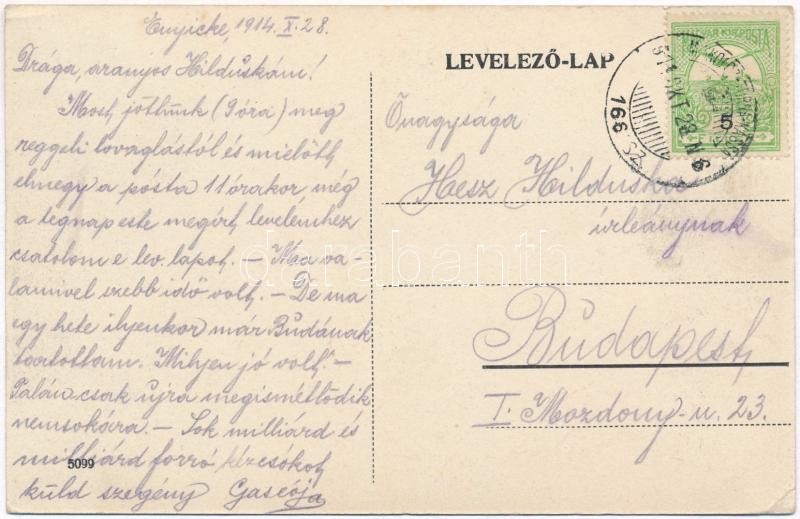 Enyicke, 1914. X. 28.
Drága, aranyos Hilduskám!
Most jöttünk (9 óra) meg
reggeli lovaglástól és mielőtt
elmegy a pósta 11 órakor még
a tegnap este megírt levelemhez
csatolom e lev. lapot. — Ma va-
lamivel szebb idő volt. — De ma
egy hete ilyenkor már Budának
tartottam. Milyen jó volt! —
Talán csak újra megismétlődik
nemsokára. — Sok milliárd és
milliárd forró kézcsókot
küld szegény
5099
LEVELEZŐ-LAP
Önagysága
Hesz Hilduska
úrleánynak
Budapest,
I. Mozdony-u. 23.
MAGYAR KIR. POSTA
166 SZ
darabanth